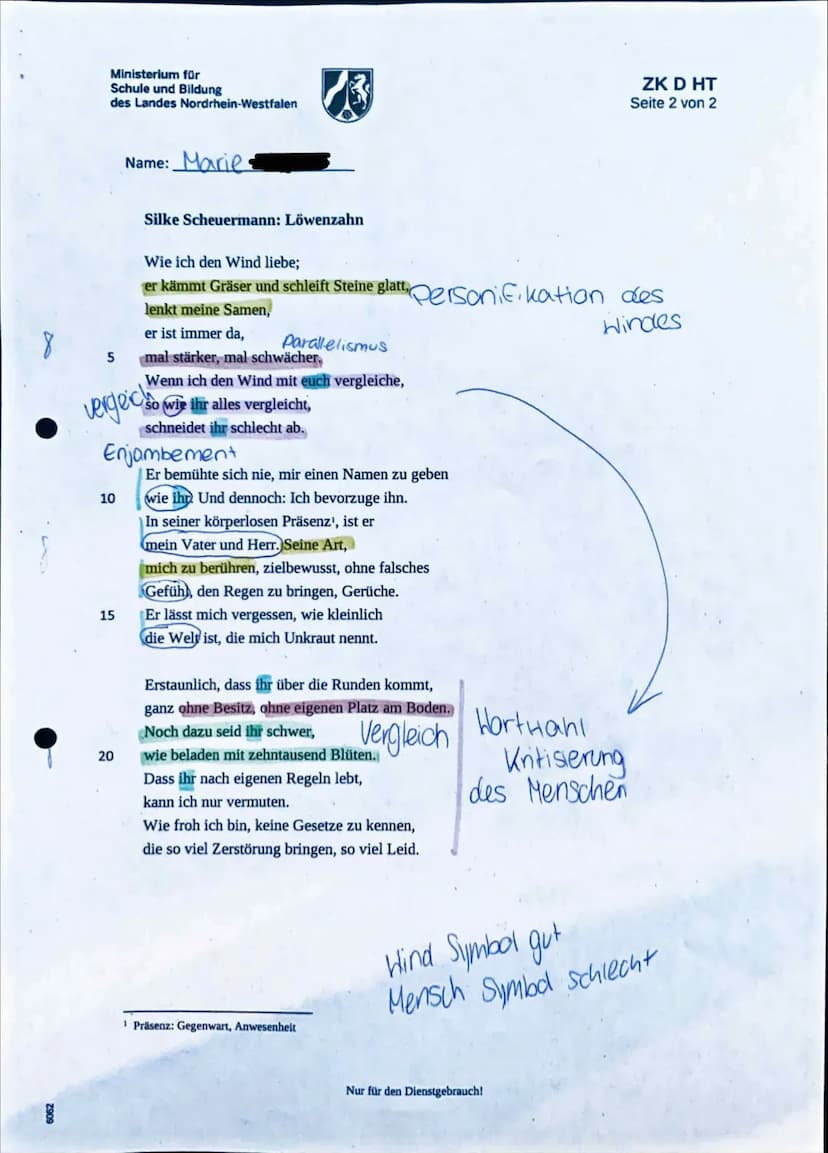 Ministerium für
Schule und Bildung
des Landes Nordrhein-Westfalen
ZK D HT
Seite 2 von 2
Name: Marie
Silke Scheuermann: Löwenzahn
Wie ich den Wind liebe;
er kämmt Gräser und schleift Steine glatt, Personifikation des
Windes
lenkt meine Samen,
er ist immer da,
8
Parallelismus
5 mal stärker, mal schwächer.
Wenn ich den Wind mit euch vergleiche,
Vergleich
so wie ihr alles vergleicht,
schneidet ihr schlecht ab.
Enjambement
Er bemühte sich nie, mir einen Namen zu geben
10 wie ihr. Und dennoch: Ich bevorzuge ihn.
In seiner körperlosen Präsenz¹, ist er
mein Vater und Herr. Seine Art,
mich zu berühren, zielbewusst, ohne falsches
Gefühl, den Regen zu bringen, Gerüche.
15 Er lässt mich vergessen, wie kleinlich
die Welt ist, die mich Unkraut nennt.
Erstaunlich, dass ihr über die Runden kommt,
ganz ohne Besitz, ohne eigenen Platz am Boden.
Noch dazu seid ihr schwer, Vergleich
20 wie beladen mit zehntausend Blüten.
Dass ihr nach eigenen Regeln lebt,
kann ich nur vermuten.
Wie froh ich bin, keine Gesetze zu kennen,
die so viel Zerstörung bringen, so viel Leid.
Wortwahl
Kritisierung
des Menschen
Wind Symbol gut
Mensch Symbol schlecht
¹ Präsenz: Gegenwart, Anwesenheit
Nur für den Dienstgebrauch!